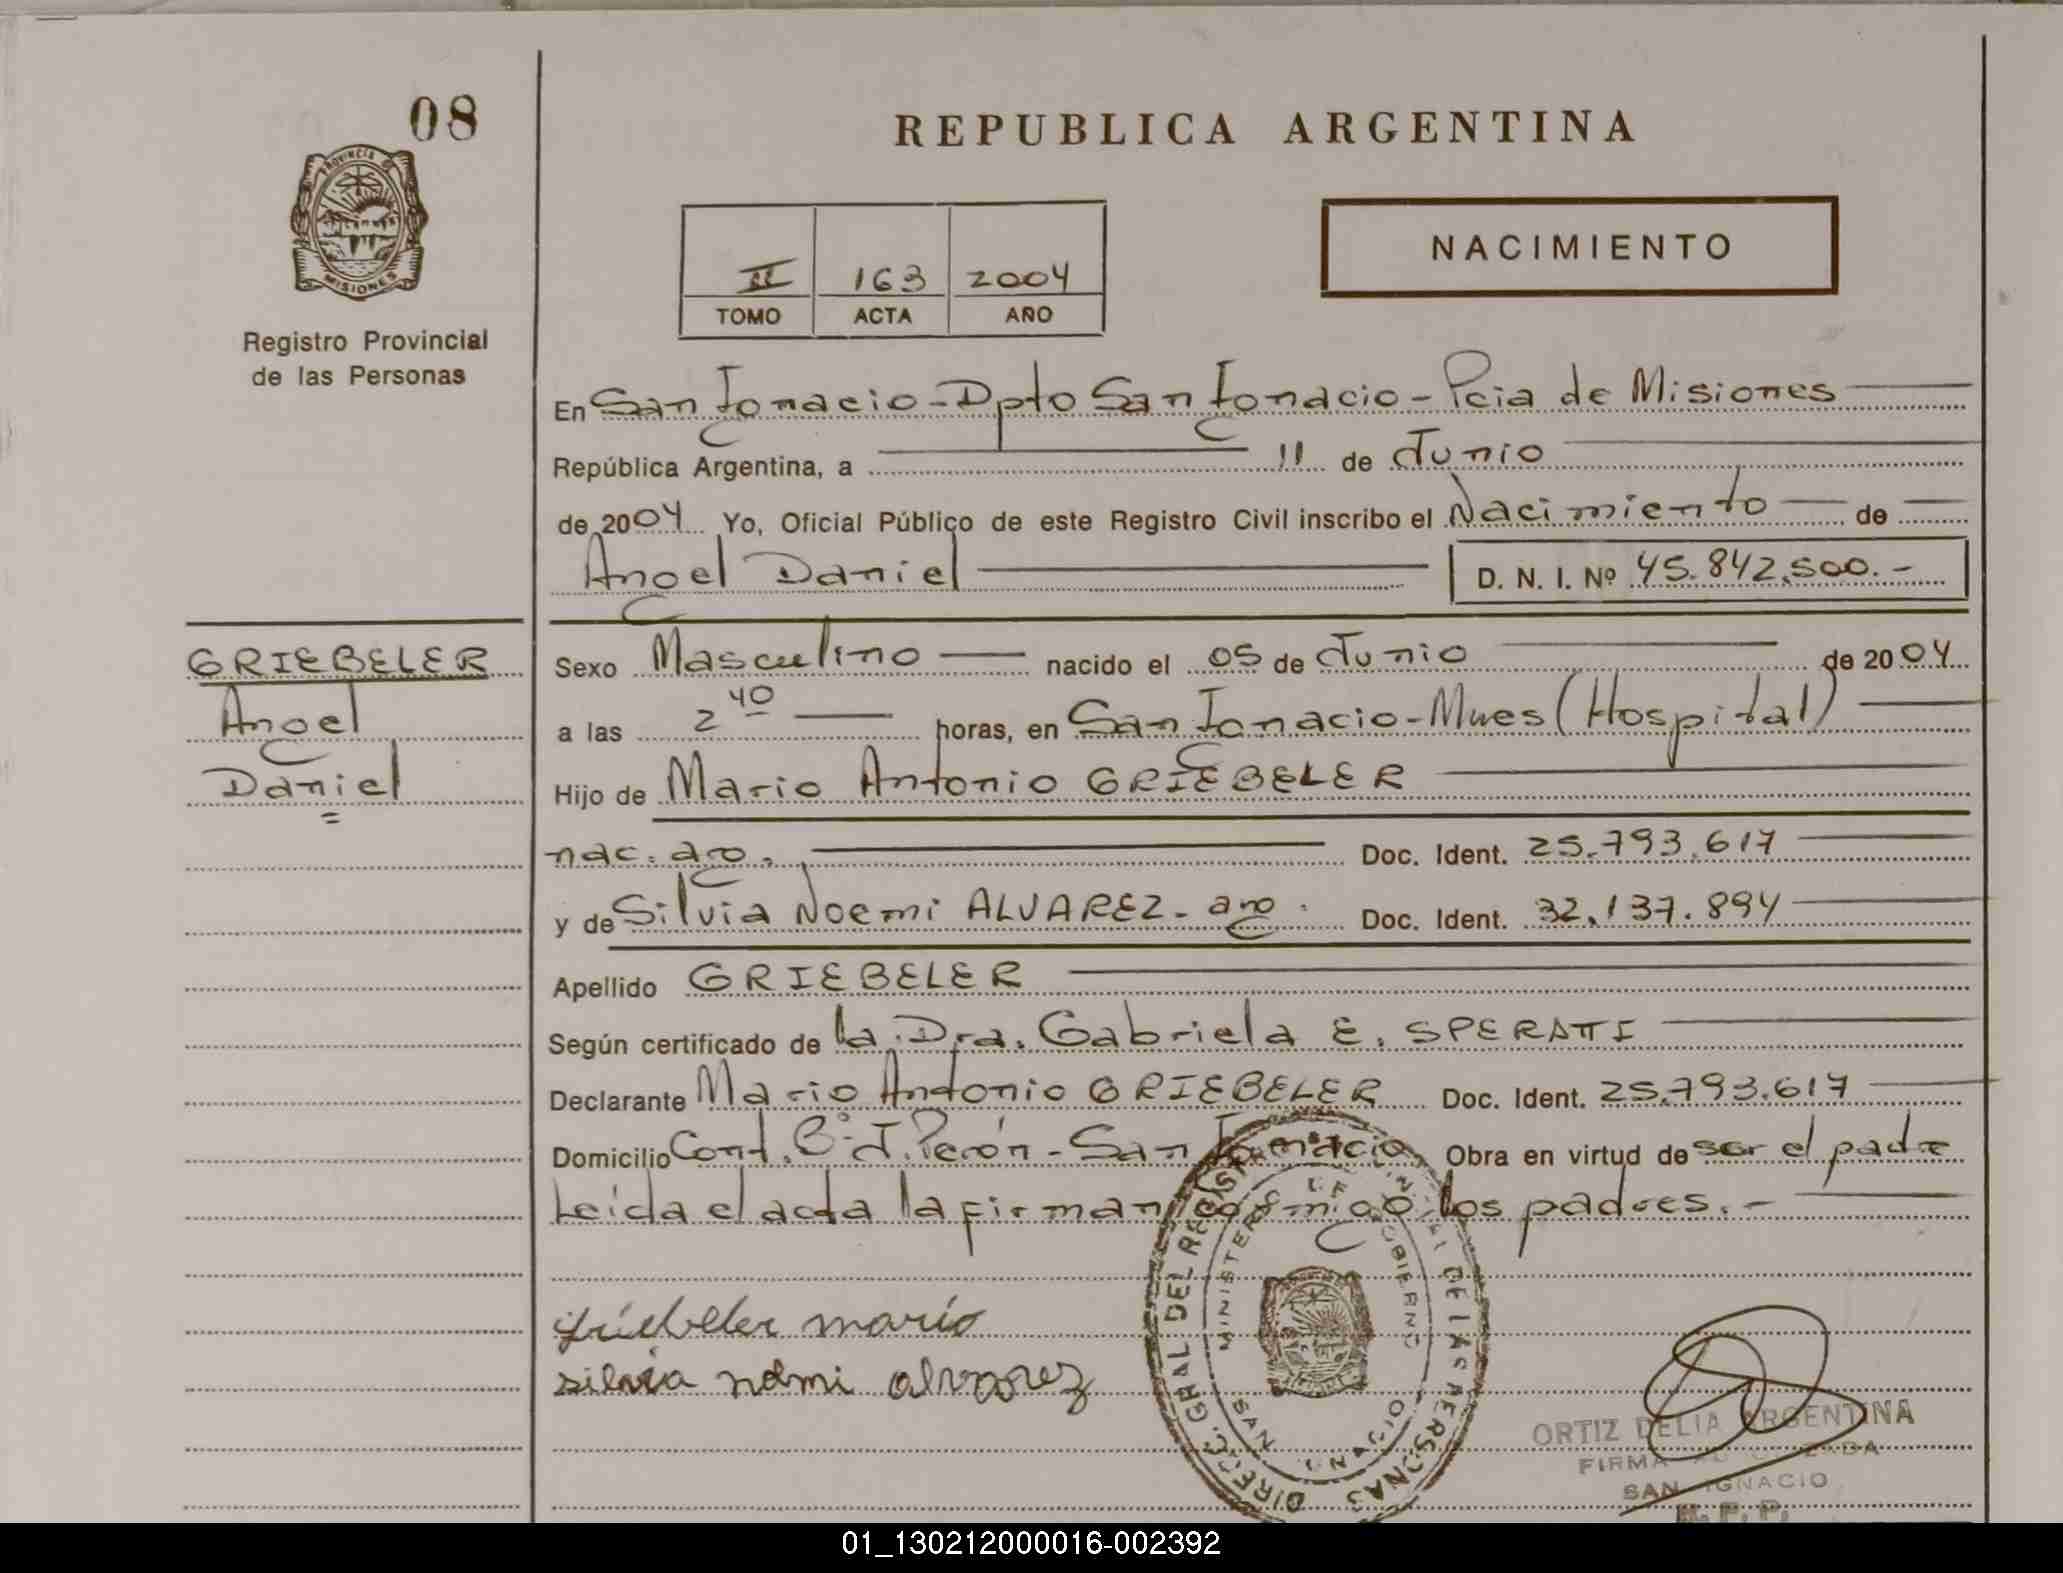 08
PROVINCIA DE
MISIONES
Registro Provincial
de las Personas
REPUBLICA ARGENTINA
II 163 2004
TOMO ACTA AÑO
NACIMIENTO
En San Ignacio - Dpto San Ignacio - Pcia de Misiones
República Argentina, a 11 de Junio
de 2004 Yo, Oficial Público de este Registro Civil inscribo el Nacimiento de
Angel Daniel D. N. I. Nº 45.842.500.-
GRIEBELER
Angel
Daniel
Sexo Masculino nacido el 05 de Junio de 2004
a las 2 40 horas, en San Ignacio - Mnes (Hospital)
Hijo de Mario Antonio GRIEBELER
nac. arg. Doc. Ident. 25.793.617
y de Silvia Noemi ALVAREZ - arg. Doc. Ident. 32.137.894
Apellido GRIEBELER
Según certificado de la Dra. Gabriela E. SPERATTI
Declarante Mario Antonio GRIEBELER Doc. Ident. 25.793.617
Domicilio Cont. Bº J. Perón - San Ignacio Obra en virtud de ser el padre
Leída el acta la firman conmigo los padres.-
griebeler mario
silvia noemi alvarez
DIREC. GRAL DEL REGISTRO DE LAS PERSONAS
MINISTERIO DE GOBIERNO
ORTIZ DELIA ARGENTINA
FIRMA AUTORIZADA
SAN IGNACIO
R. P. P.
01_130212000016-002392